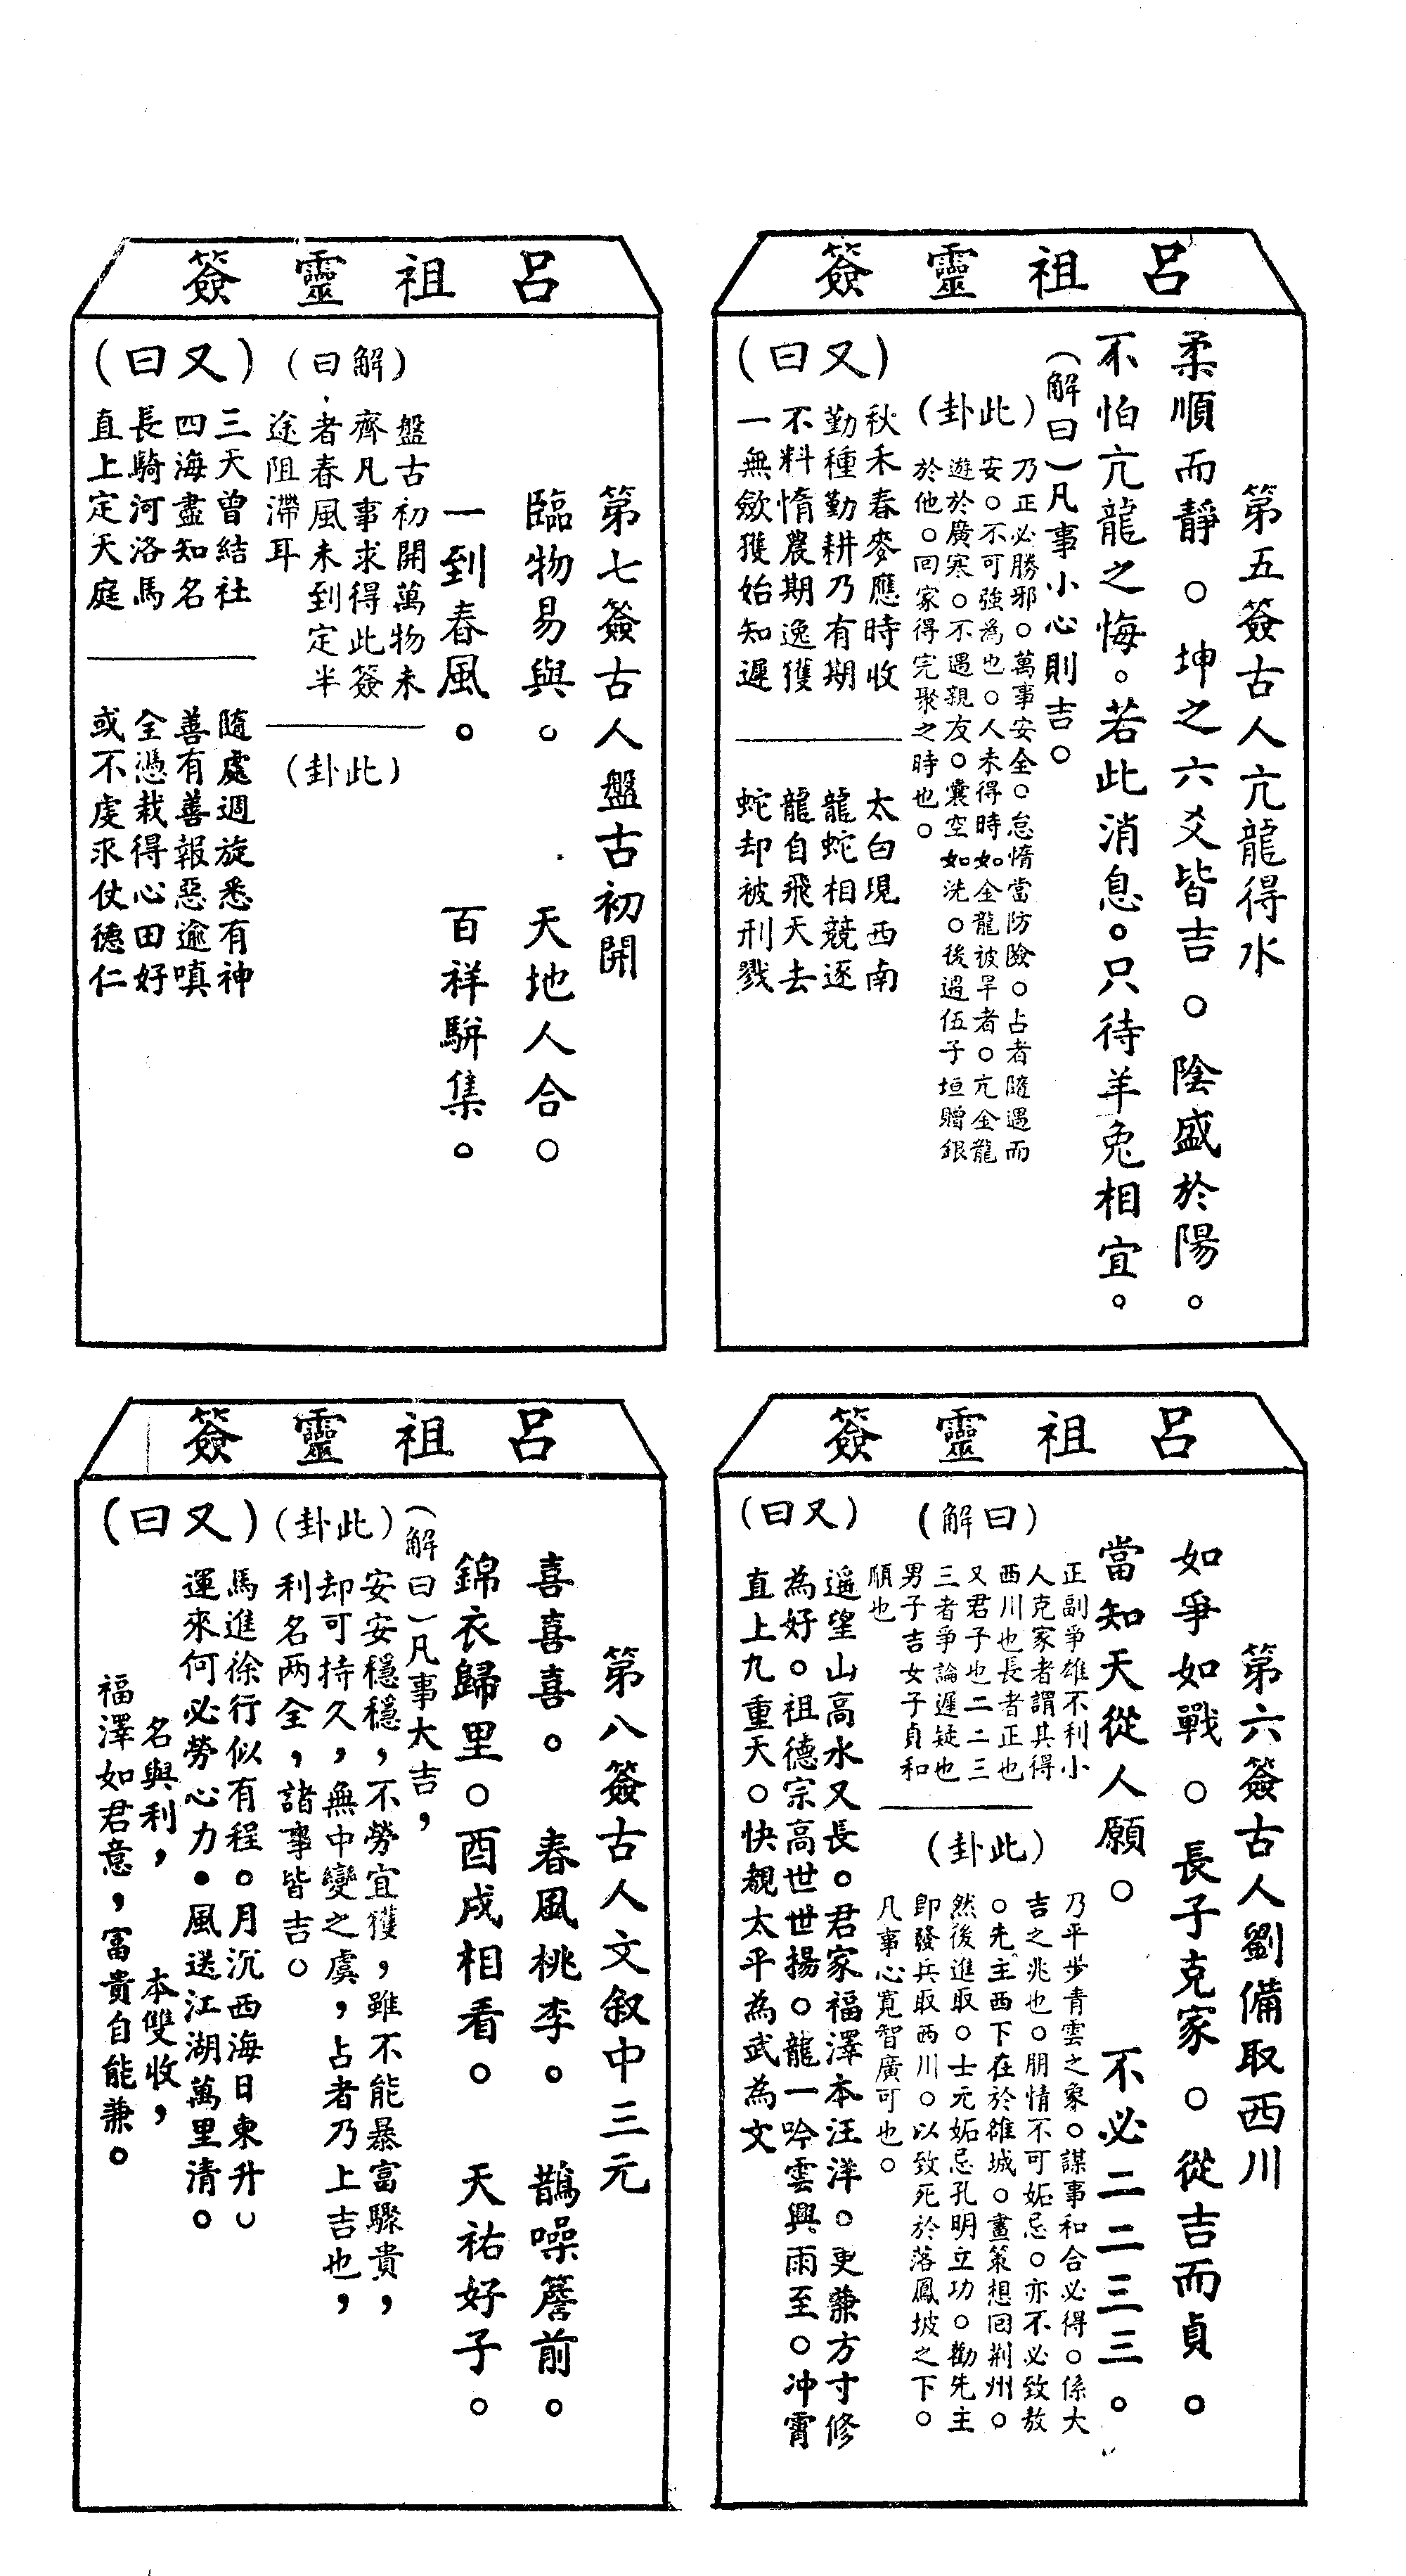 呂祖靈簽
第五簽古人亢龍得水
柔順而靜。坤之六爻皆吉。陰盛於陽。
不怕亢龍之悔。若此消息。只待羊兔相宜。
（解曰）凡事小心則吉。
（此卦）
乃正必勝邪。萬事安全。怠惰當防險。占者隨遇而
安。不可強為也。人未得時如金龍被旱者。亢金龍
遊於廣寒。不遇親友。囊空如洗。後過伍子垣贈銀
於他。回家得完聚之時也。
（又曰）
秋禾春麥應時收
勤種勤耕乃有期
不料惰農期逸獲
一無斂獲始知遲
太白現西南
龍蛇相競逐
龍自飛天去
蛇却被刑戮
呂祖靈簽
第六簽古人劉備取西川
如爭如戰。長子克家。從吉而貞。
當知天從人願。不必二二三三。
（解曰）
正副爭雄不利小
人克家者謂其得
西川也長者正也
又君子也二二三
三者爭論遲疑也
男子吉女子貞和
順也
（此卦）
乃平步青雲之象。謀事和合必得。係大
吉之兆也。朋情不可妬忌。亦不必致敖
。先主西下在於雒城。畫策想回荆州。
然後進取。士元妬忌孔明立功。勸先主
即發兵取西川。以致死於落鳳坡之下。
凡事心寬智廣可也。
（又曰）
遥望山高水又長。君家福澤本汪洋。更兼方寸修
為好。祖德宗高世世揚。龍一吟雲興雨至。冲霄
直上九重天。快覩太平為武為文
呂祖靈簽
第七簽古人盤古初開
臨物易與。天地人合。
一到春風。百祥騈集。
（解曰）
盤古初開萬物未
齊凡事求得此簽
者春風未到定半
途阻滯耳
（此卦）
（又曰）
三天曾結社
四海盡知名
長騎河洛馬
直上定天庭
隨處週旋悉有神
善有善報惡逾嗔
全憑栽得心田好
或不虔求仗德仁
呂祖靈簽
第八簽古人文叙中三元
喜喜喜。春風桃李。鵲噪簷前。
錦衣歸里。酉戌相看。天祐好子。
（解曰）凡事大吉，
（此卦）
安安穩穩，不勞宜獲，雖不能暴富驟貴，
却可持久，無中變之虞，占者乃上吉也，
利名两全，諸事皆吉。
（又曰）
馬進徐行似有程。月沉西海日東升。
運來何必勞心力．風送江湖萬里清。
名與利，本雙收，
福澤如君意，富貴自能兼。